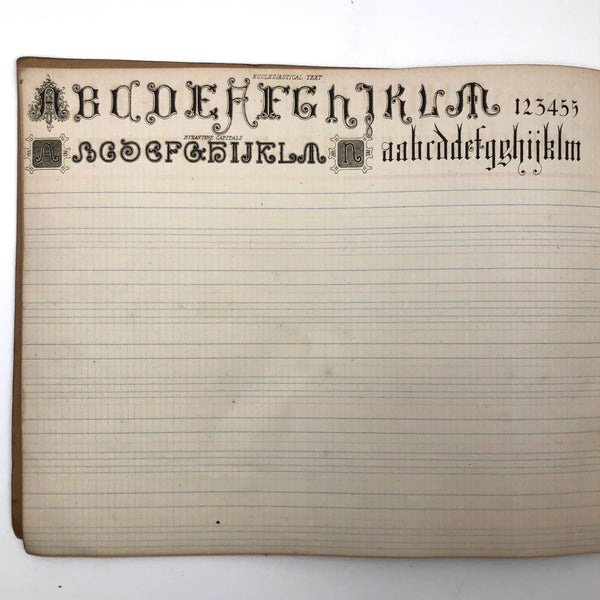 ECCLESIASTICAL TEXT
A B C D E F F G h I J K L M 1 2 3 4 5 5
BYZANTINE CAPITALS
A A B C D E F G & H I J K L M N a a b c d d e f g g h i j k l m